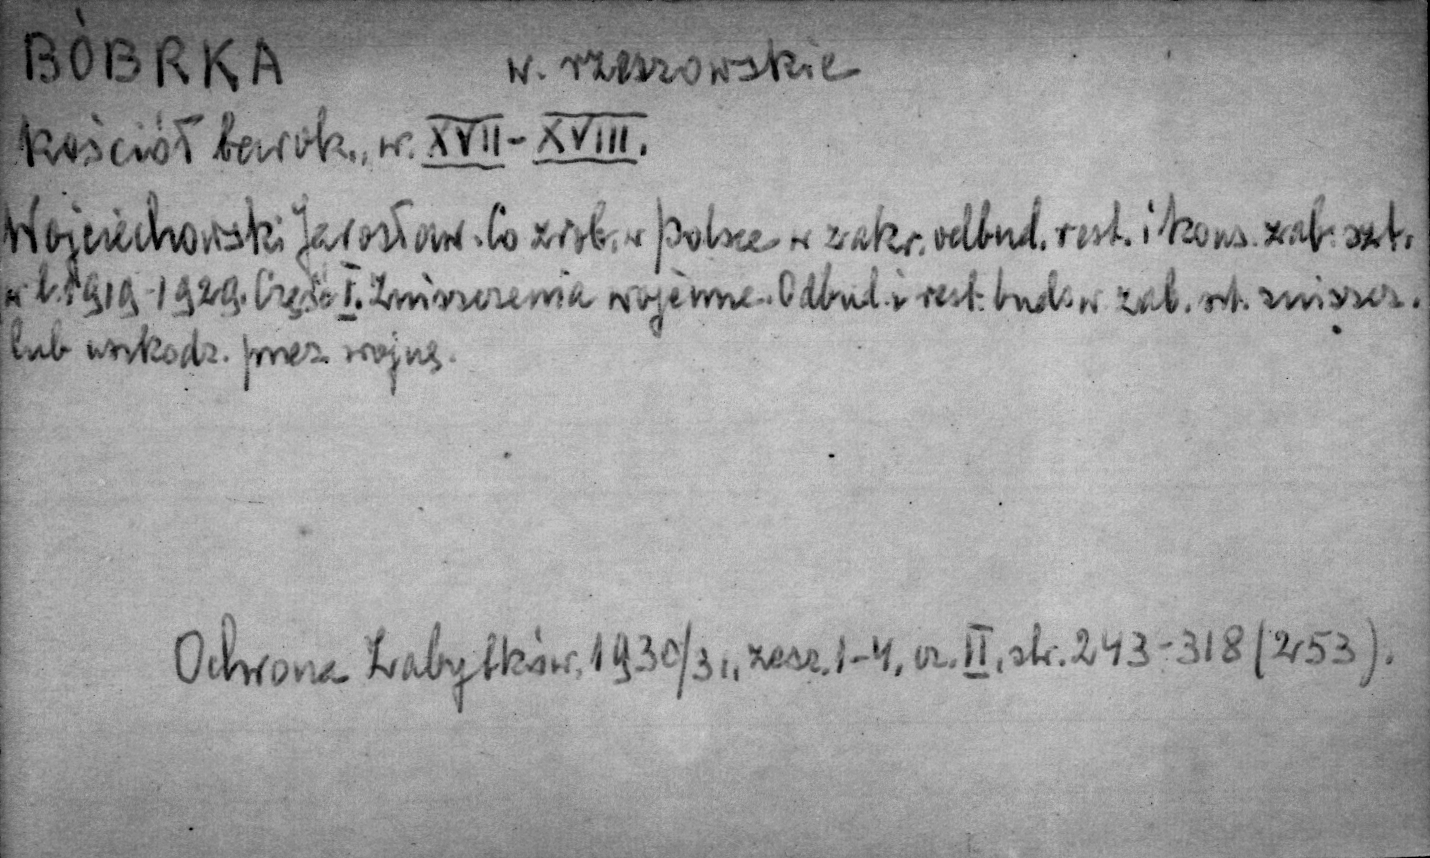 BÓBRKA w. rzeszowskie
Kościół barok., w. XVII-XVIII.
Wojciechowski Jarosław. Co zrob. w Polsce w zakr. odbud. rest. i kons. zab. szt.
w l. 1919-1929. Część I. Zniszczenia wojenne. Odbud. i rest. bud. w zab. szt. zniszcz.
lub uszkodz. przez wojnę.
Ochrona Zabytków, 1930/31, zesz. 1-4, cz. II, str. 243-318 (253).